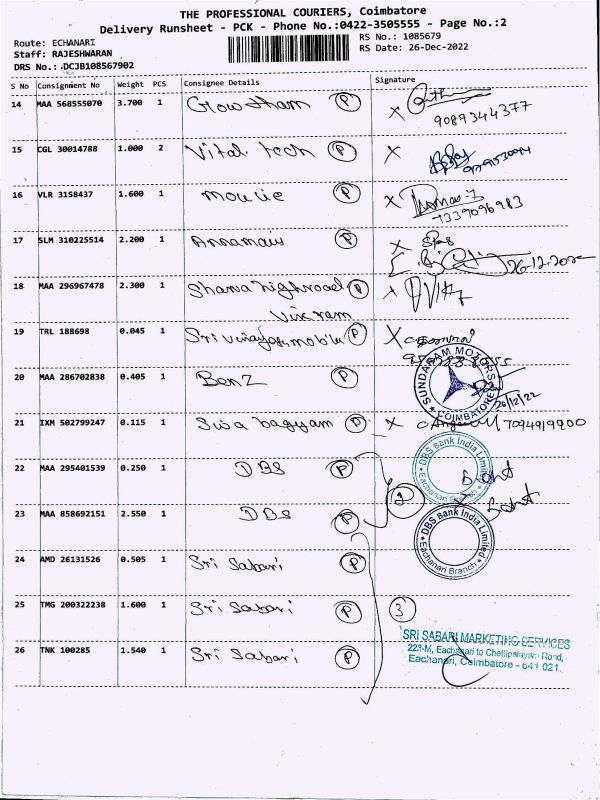 THE PROFESSIONAL COURIERS, Coimbatore
Delivery Runsheet - PCK - Phone No.:0422-3505555 - Page No.:2
Route: ECHANARI
RS No.: 1085679
Staff: RAJESHWARAN
RS Date: 26-Dec-2022
DRS No.: DCJB108567902
S No Consignment No Weight PCS Consignee Details Signature
14 MAA 568555070 3.700 1 Gowtham P
9089344377
15 CGL 30014788 1.000 2 Vital tech P
16 VLR 3158437 1.600 1 mouvie P
Thomas
7339096983
17 SLM 310225514 2.200 1 Annamais P
26-12-2022
18 MAA 296967478 2.300 1 Sharma highroad P
Vikram
19 TRL 188698 0.045 1 Sri Vinayaga mobile P
20 MAA 286702838 0.405 1 Benz P
SUNDARAM MOTORS
COIMBATORE
26/12/22
21 IXM 502799247 0.115 1 Siva bagyam P
7094919900
22 MAA 295401539 0.250 1 DBS P
DBS Bank India Limited
Eachanari Branch
2
23 MAA 858692151 2.550 1 DBS P
DBS Bank India Limited
Eachanari Branch
24 AMD 26131526 0.505 1 Sri Sabari P
25 TMG 200322238 1.600 1 Sri Sabari P
3
26 TNK 100285 1.540 1 Sri Sabari P
SRI SABARI MARKETING SERVICES
223-M, Eachanari to Chettipalayam Road,
Eachanari, Coimbatore - 641 021.